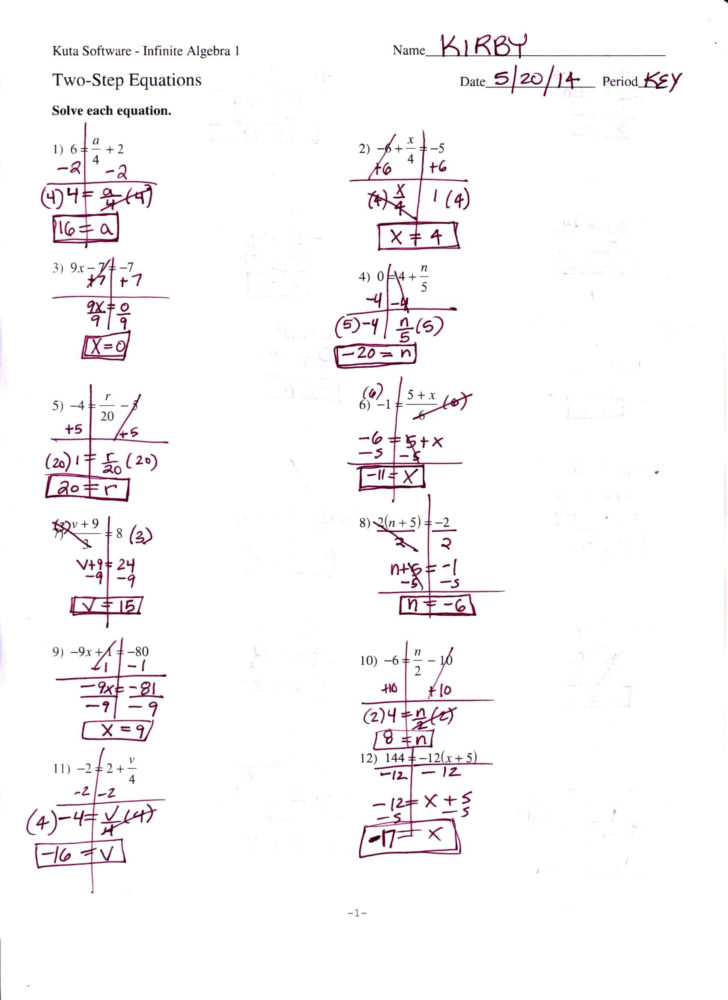 Kuta Software - Infinite Algebra 1
Name KIRBY
Two-Step Equations
Date 5/20/14 Period KEY
Solve each equation.
1) 6 = a/4 + 2
-2 -2
(4) 4 = a/4 (4)
16 = a
2) -6 + x/4 = -5
+6 +6
(4) x/4 1 (4)
x = 4
3) 9x - 7 = -7
+7 +7
9x/9 = 0/9
x = 0
4) 0 = 4 + n/5
-4 -4
(5) -4 n/5 (5)
-20 = n
5) -4 = r/20 - 5
+5 +5
(20) 1 = r/20 (20)
20 = r
(6)
6) -1 = 5 + x/6 (6)
-6 = 5 + x
-5 -5
-11 = x
7) (3) v + 9/3 = 8 (3)
v+9 = 24
-9 -9
v = 15
8) 2(n + 5) = -2
2 2
n+5 = -1
-5 -5
n = -6
9) -9x + 1 = -80
-1 -1
-9x = -81
-9 -9
x = 9
10) -6 = n/2 - 10
+10 +10
(2) 4 = n/2 (2)
8 = n
11) -2 = 2 + v/4
-2 -2
(4) -4 = v/4 (4)
-16 = v
12) 144 = -12(x + 5)
-12 -12
-12 = x + 5
-5 -5
-17 = x
-1-